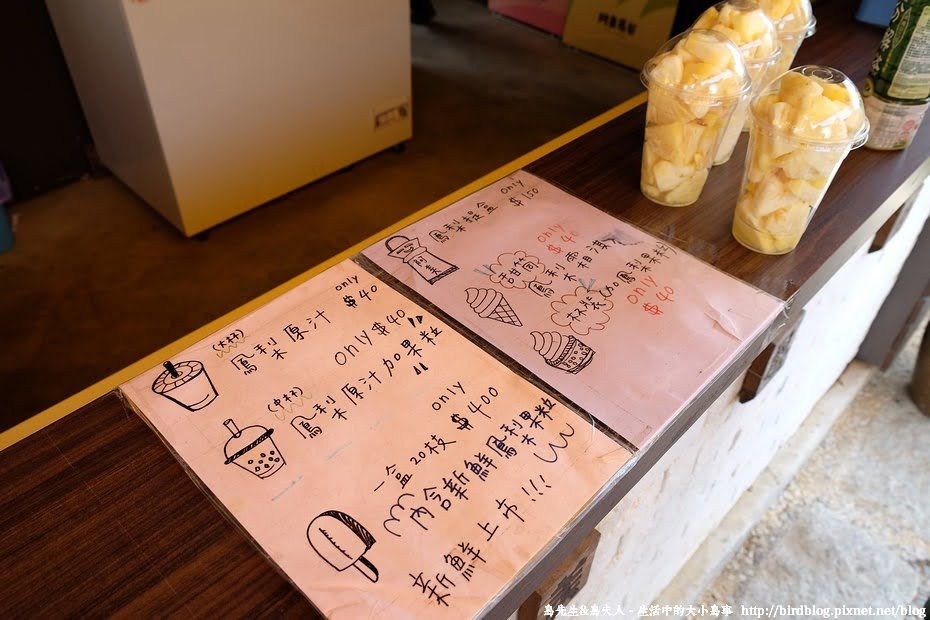 only
$40
(大杯)
鳳梨原汁
only $40
(中杯)
鳳梨原汁加果粒
only
$400
一盒20枝
內含新鮮鳳梨果粒
新鮮上市!!!
only
$150
鳳梨提盒
only
$40
甜筒
only
$40
杯裝
加鳳梨果粒
鳥先生&鳥夫人 - 生活中的大小鳥事 http://birdblog.pixnet.net/blog